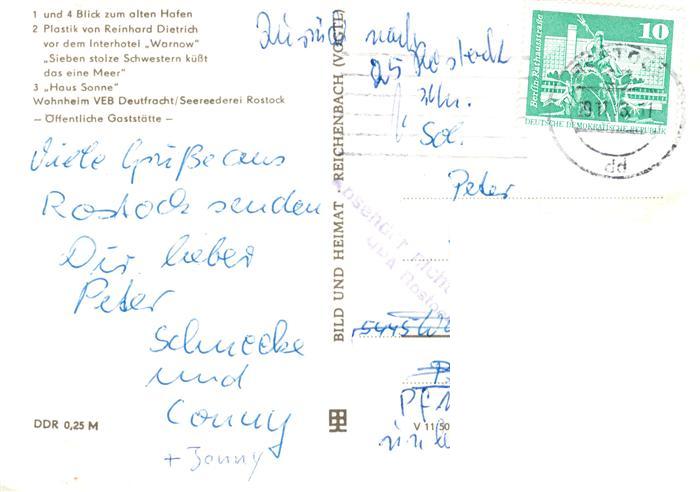 1 und 4 Blick zum alten Hafen
2 Plastik von Reinhard Dietrich
vor dem Interhotel „Warnow"
„Sieben stolze Schwestern küßt
das eine Meer"
3 „Haus Sonne"
Wohnheim VEB Deutfracht/Seereederei Rostock
– Öffentliche Gaststätte –
Viele Grüße aus
Rostock senden
Dir lieber
Peter
Schnecke
und
Conny
+ Jonny
DDR 0,25 M
BILD UND HEIMAT REICHENBACH (VOGTL)
Zurück nach
25 Rostock
Sol.
Peter
10
Berlin-Rathausstraße
DEUTSCHE DEMOKRATISCHE REPUBLIK
dd
5445
PF 1
V 11 50